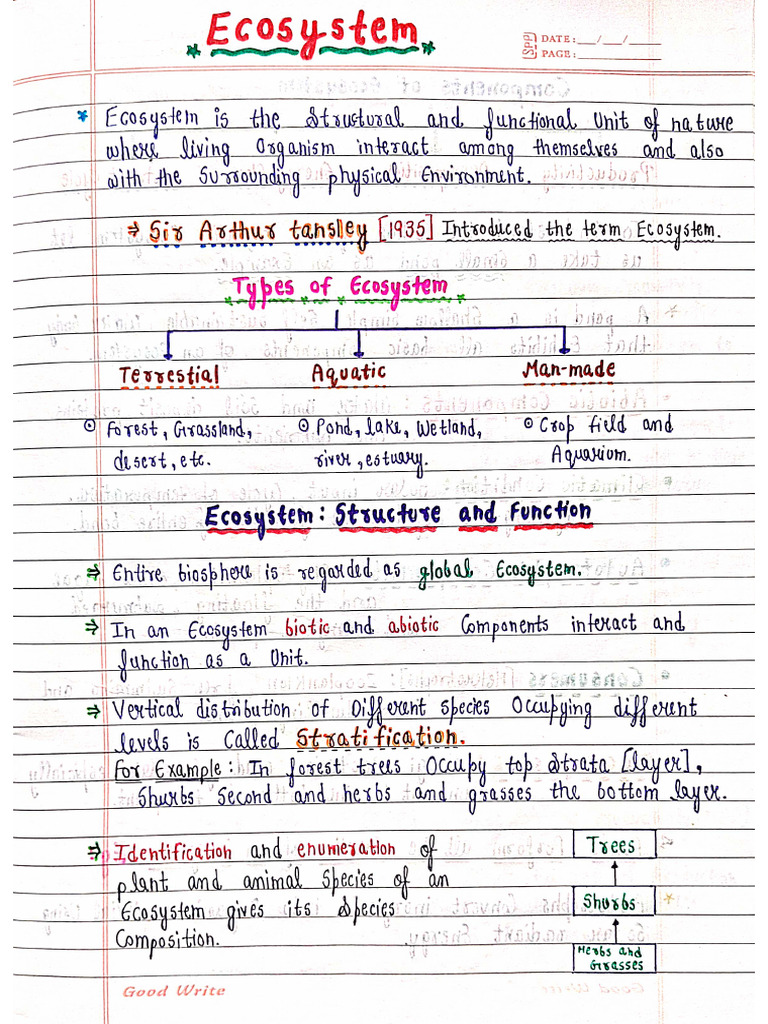 Ecosystem
SPP DATE: __/__/____
PAGE: ________
* Ecosystem is the Strustural and functional Unit of nature
where living Organism interact among themselves and also
with the Surrounding physical Environment.
⇒ Sir Arthur tansley [1935] Introduced the term Ecosystem.
Types of Ecosystem
Terrestial Aquatic Man-made
⊙ Forest, Grassland, ⊙ Pond, lake, Wetland, ⊙ Crop field and
desert, etc. river, estuary. Aquarium.
Ecosystem: Structure and Function
⇒ Entire biosphere is regarded as global Ecosystem.
⇒ In an Ecosystem biotic and abiotic Components interact and
function as a Unit.
⇒ Vertical distribution of Different Species Occupying different
levels is Called Stratification.
For Example: In forest trees Occupy top Strata [layer],
Shurbs Second and herbs and grasses the bottom layer.
⇒ Identification and enumeration of
plant and animal Species of an
Ecosystem gives its Species
Composition.
Trees
Shurbs
Herbs and
Grasses
Good Write